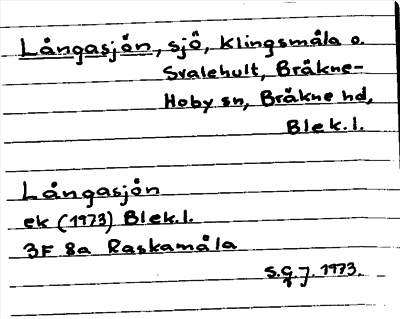 Långasjön, sjö, Klingsmåla o.
Svalehult, Bräkne-
Hoby sn, Bräkne hd,
Blek.l.
Långasjön
ek (1973) Blek.l.
3F 8a Raskamåla
S.G.J. 1973.